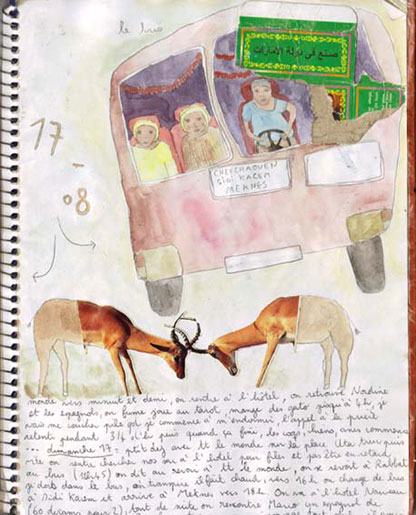 le bus
صنع في دولة الامارات
17-08
CHEFCHAOUEN
SIDI KACEM
MEKNES
monde vers minuit et demi, on rentre à l'hôtel, on retrouve Nadine
et les espagnols, on fume joue au tarot, mange des gato jusqu'à 4h, je
vais me coucher pile où je commence à m'endormir, l'appel à la prière
retentit pendant 3/4 d'h puis quand ça fini, des coqs, chiens, anes commence
... dimanche 17: ptit déj avec tt le monde sur la place
vite on rentre chercher nos sac à l'hotel puis filer et pas être en retard
au bus (12h45) on dit au revoir à tt le monde, on se revoit à Rabbat
je dors dans le bus, on transpire, il fait chaud, vers 16h on change de bus
à Sidi Kacem et arrive à Meknes vers 18h. On va à l'hôtel Nouveau
(60 dirhams pour 2), tout de suite on rencontre Mario un espagnol de